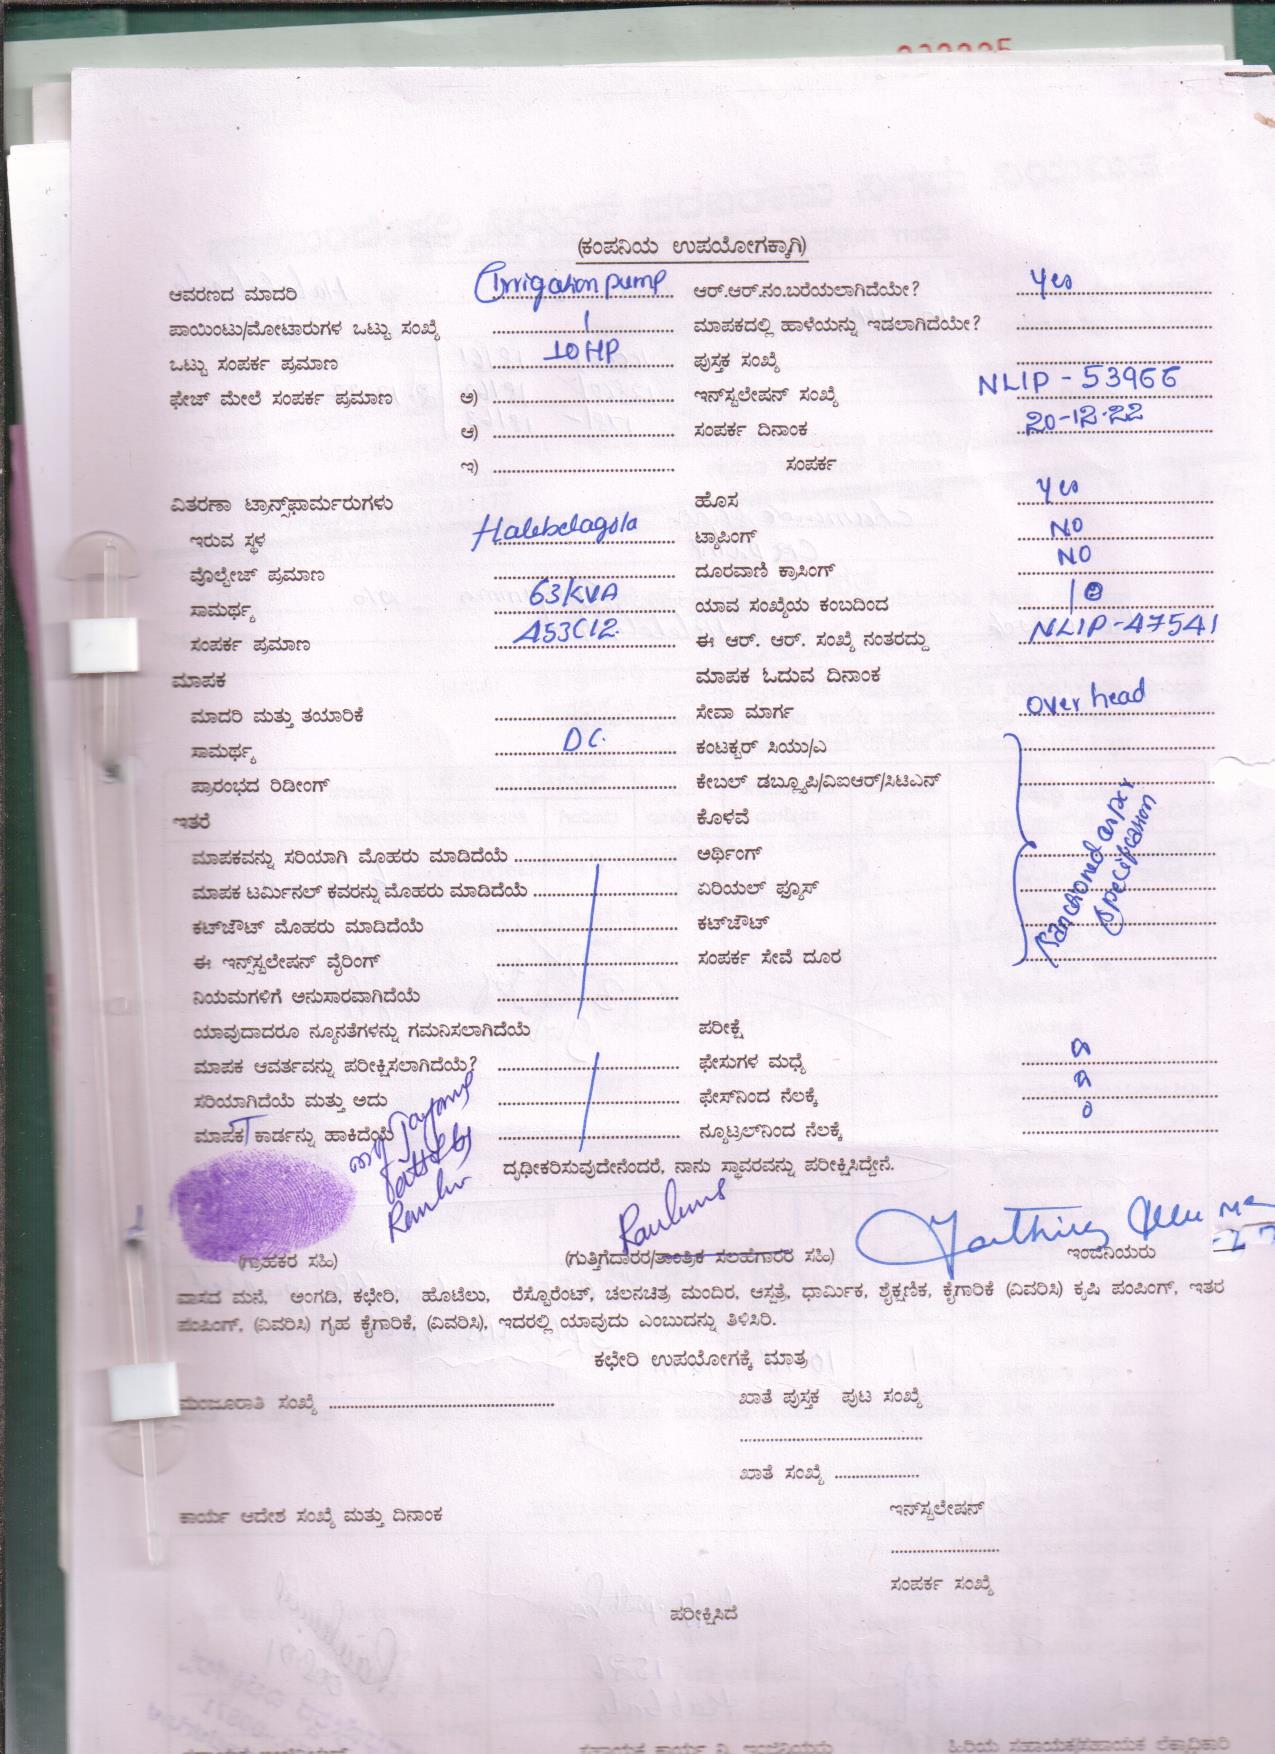 (ಕಂಪನಿಯ ಉಪಯೋಗಕ್ಕಾಗಿ)
ಆವರಣದ ಮಾದರಿ Irrigation pump ಆರ್.ಆರ್.ನಂ.ಬರೆಯಲಾಗಿದೆಯೇ? Yes
ಪಾಯಿಂಟು/ಮೋಟಾರುಗಳ ಒಟ್ಟು ಸಂಖ್ಯೆ 1 ಮಾಪಕದಲ್ಲಿ ಹಾಳೆಯನ್ನು ಇಡಲಾಗಿದೆಯೇ?
ಒಟ್ಟು ಸಂಪರ್ಕ ಪ್ರಮಾಣ 10HP ಪುಸ್ತಕ ಸಂಖ್ಯೆ
ಫೇಜ್ ಮೇಲೆ ಸಂಪರ್ಕ ಪ್ರಮಾಣ ಅ) ಇನ್‌ಸ್ಟಲೇಷನ್ ಸಂಖ್ಯೆ NLIP - 53966
ಆ) ಸಂಪರ್ಕ ದಿನಾಂಕ 20-12-22
ಇ) ಸಂಪರ್ಕ
ವಿತರಣಾ ಟ್ರಾನ್ಸ್‌ಫಾರ್ಮರುಗಳು ಹೊಸ Yes
ಇರುವ ಸ್ಥಳ Halebelagola ಟ್ಯಾಪಿಂಗ್ NO
ವೊಲ್ಟೇಜ್ ಪ್ರಮಾಣ ದೂರವಾಣಿ ಕ್ರಾಸಿಂಗ್ NO
ಸಾಮರ್ಥ್ಯ 63KVA ಯಾವ ಸಂಖ್ಯೆಯ ಕಂಬದಿಂದ
ಸಂಪರ್ಕ ಪ್ರಮಾಣ A53C12 ಈ ಆರ್. ಆರ್. ಸಂಖ್ಯೆ ನಂತರದ್ದು NLIP-47541
ಮಾಪಕ ಮಾಪಕ ಓದುವ ದಿನಾಂಕ
ಮಾದರಿ ಮತ್ತು ತಯಾರಿಕೆ ಸೇವಾ ಮಾರ್ಗ over head
ಸಾಮರ್ಥ್ಯ DC. ಕಂಟಕ್ಟರ್ ಸಿಯು/ಎ
ಪ್ರಾರಂಭದ ರಿಡೀಂಗ್ ಕೇಬಲ್ ಡಬ್ಲ್ಯೂಪಿ/ವಿಐಆರ್/ಸಿಟಿಎನ್
ಇತರೆ ಕೊಳವೆ
ಮಾಪಕವನ್ನು ಸರಿಯಾಗಿ ಮೊಹರು ಮಾಡಿದೆಯೆ ಅರ್ಥಿಂಗ್
ಮಾಪಕ ಟರ್ಮಿನಲ್ ಕವರನ್ನು ಮೊಹರು ಮಾಡಿದೆಯೆ ಏರಿಯಲ್ ಫ್ಯೂಸ್
ಕಟ್‌ಜೌಟ್ ಮೊಹರು ಮಾಡಿದೆಯೆ ಕಟ್‌ಜೌಟ್
Sanctioned as per specification
ಈ ಇನ್ಸ್‌ಸ್ಟಲೇಷನ್ ವೈರಿಂಗ್ ಸಂಪರ್ಕ ಸೇವೆ ದೂರ
ನಿಯಮಗಳಿಗೆ ಅನುಸಾರವಾಗಿದೆಯೆ
ಯಾವುದಾದರೂ ನ್ಯೂನತೆಗಳನ್ನು ಗಮನಿಸಲಾಗಿದೆಯೆ ಪರೀಕ್ಷೆ
ಮಾಪಕ ಆವರ್ತವನ್ನು ಪರೀಕ್ಷಿಸಲಾಗಿದೆಯೆ? ಫೇಸುಗಳ ಮಧ್ಯೆ
ಸರಿಯಾಗಿದೆಯೆ ಮತ್ತು ಅದು ಫೇಸ್‌ನಿಂದ ನೆಲಕ್ಕೆ
ಮಾಪಕ ಕಾರ್ಡನ್ನು ಹಾಕಿದೆಯೆ ನ್ಯೂಟ್ರಲ್‌ನಿಂದ ನೆಲಕ್ಕೆ 0
ದೃಢೀಕರಿಸುವುದೇನೆಂದರೆ, ನಾನು ಸ್ಥಾವರವನ್ನು ಪರೀಕ್ಷಿಸಿದ್ದೇನೆ.
(ಗ್ರಾಹಕರ ಸಹಿ) (ಗುತ್ತಿಗೆದಾರರ/ತಾಂತ್ರಿಕ ಸಲಹೆಗಾರರ ಸಹಿ) ಇಂಜಿನಿಯರು
ವಾಸದ ಮನೆ, ಅಂಗಡಿ, ಕಛೇರಿ, ಹೊಟೆಲು, ರೆಸ್ಟೊರೆಂಟ್, ಚಲನಚಿತ್ರ ಮಂದಿರ, ಆಸ್ಪತ್ರೆ, ಧಾರ್ಮಿಕ, ಶೈಕ್ಷಣಿಕ, ಕೈಗಾರಿಕೆ (ವಿವರಿಸಿ) ಕೃಷಿ ಪಂಪಿಂಗ್, ಇತರ
ಪಂಪಿಂಗ್, (ವಿವರಿಸಿ) ಗೃಹ ಕೈಗಾರಿಕೆ, (ವಿವರಿಸಿ), ಇದರಲ್ಲಿ ಯಾವುದು ಎಂಬುದನ್ನು ತಿಳಿಸಿರಿ.
ಕಛೇರಿ ಉಪಯೋಗಕ್ಕೆ ಮಾತ್ರ
ಮಂಜೂರಾತಿ ಸಂಖ್ಯೆ ಖಾತೆ ಪುಸ್ತಕ ಪುಟ ಸಂಖ್ಯೆ
ಖಾತೆ ಸಂಖ್ಯೆ
ಕಾರ್ಯ ಆದೇಶ ಸಂಖ್ಯೆ ಮತ್ತು ದಿನಾಂಕ ಇನ್‌ಸ್ಟಲೇಷನ್
ಸಂಪರ್ಕ ಸಂಖ್ಯೆ
ಪರೀಕ್ಷಿಸಿದೆ